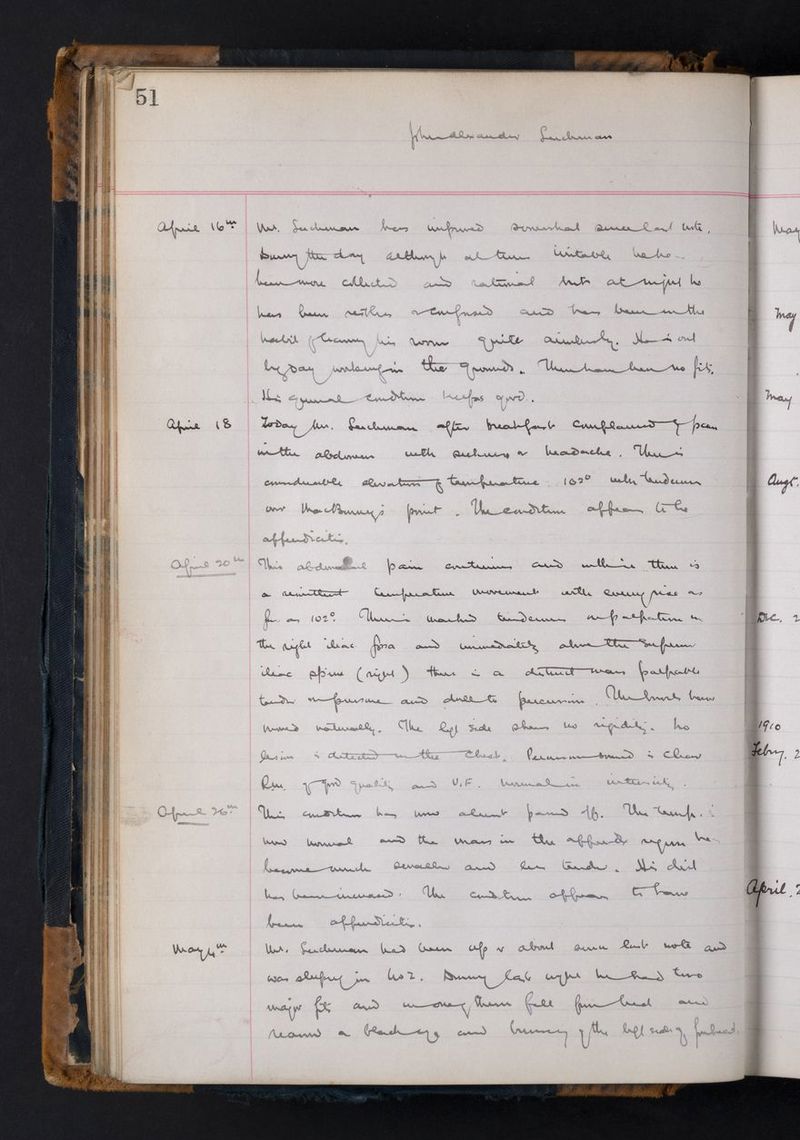 51
John Alexander Leichman
April 16th Mr. Leichman has improved somewhat since last note.
During the day although at times irritable he has
been more collected and rational but at night he
has been restless & confused and has been in the
habit of roaming his room quite aimlessly. He is out
by day working in the grounds. There have been no fits.
His general condition keeps good.
April 18 Today Mr. Leichman after breakfast complained of pain
in the abdomen with sickness & headache. There is
considerable elevation of temperature 102° with tenderness
over MacBurney's point. The condition appears to be
appendicitis.
April 20th This abdominal pain continues and with it there is
a remittent temperature movement with evening rise as
far as 102°. There is marked tenderness on palpation in
the right iliac fossa and immediately above the superior
iliac spine (right) there is a distinct mass palpable
tender on pressure and dull to percussion. The bowels have
moved naturally. The left side shows no rigidity. No
lesion is detected in the chest. Percussion sound is clear
R.M. of good quality and V.F. normal in intensity.
April 26th This condition has now almost passed off. The temp. is
now normal and the mass in the appendix region has
become much smaller and less tender. His diet
has been increased. The condition appears to have
been appendicitis.
May 4th Mr. Leichman had been up & about since last note and
was sleeping in No 2. During last night he had two
major fits and in one of them fell from bed and
received a black eye and bruising of the left side of forehead.
May
May
May
Augt.
Dec. 2
1910
Febry. 2
April. 2